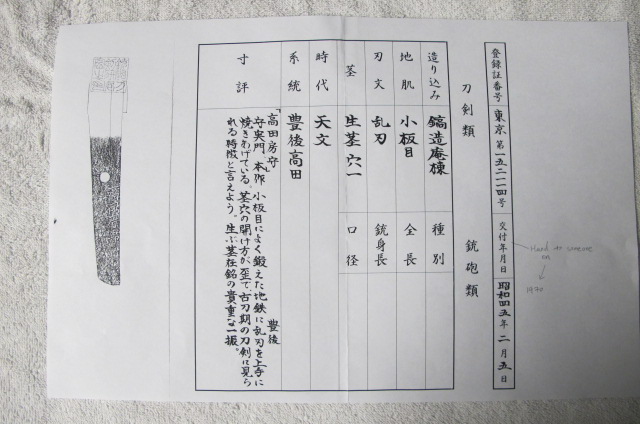 登録証番号 東京 第一五二一一四号 交付年月日 昭和四五年二月五日
刀剣類 銃砲類
造り込み 鎬造庵棟 種別
地肌 小板目 全長
刃文 乱刃 銃身長
茎 生茎穴一 口径
時代 天文
系統 豊後高田
寸評
「高田房守」 豊後
守実門 本作 小板目によく鍛えた地鉄に乱刃を上手に
焼きあげている。茎穴の開け方が歪で、古刀期の刀剣に見ら
れる特徴と言えよう。生ぶ茎在銘の貴重な一振。
Hand to someone
on
1970